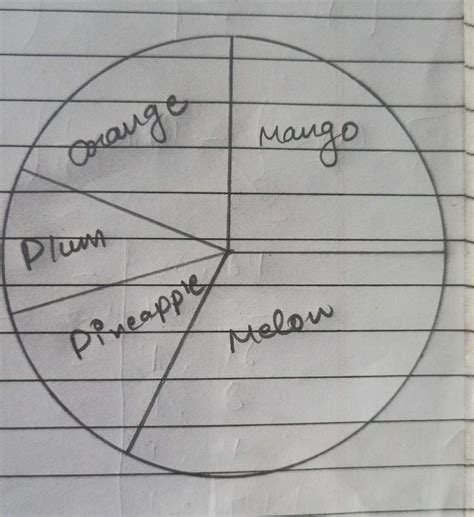 orange
Mango
Plum
Pineapple
Melon